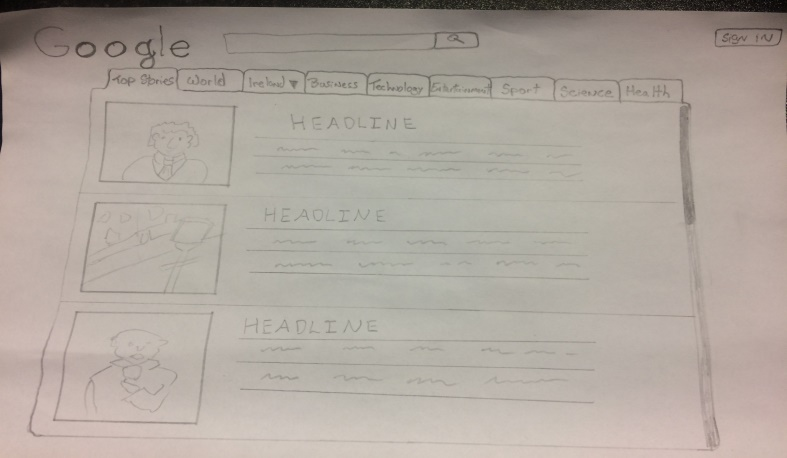 Google
SIGN IN
Top Stories World Ireland ▼ Business Technology Entertainment Sport Science Health
HEADLINE
HEADLINE
HEADLINE